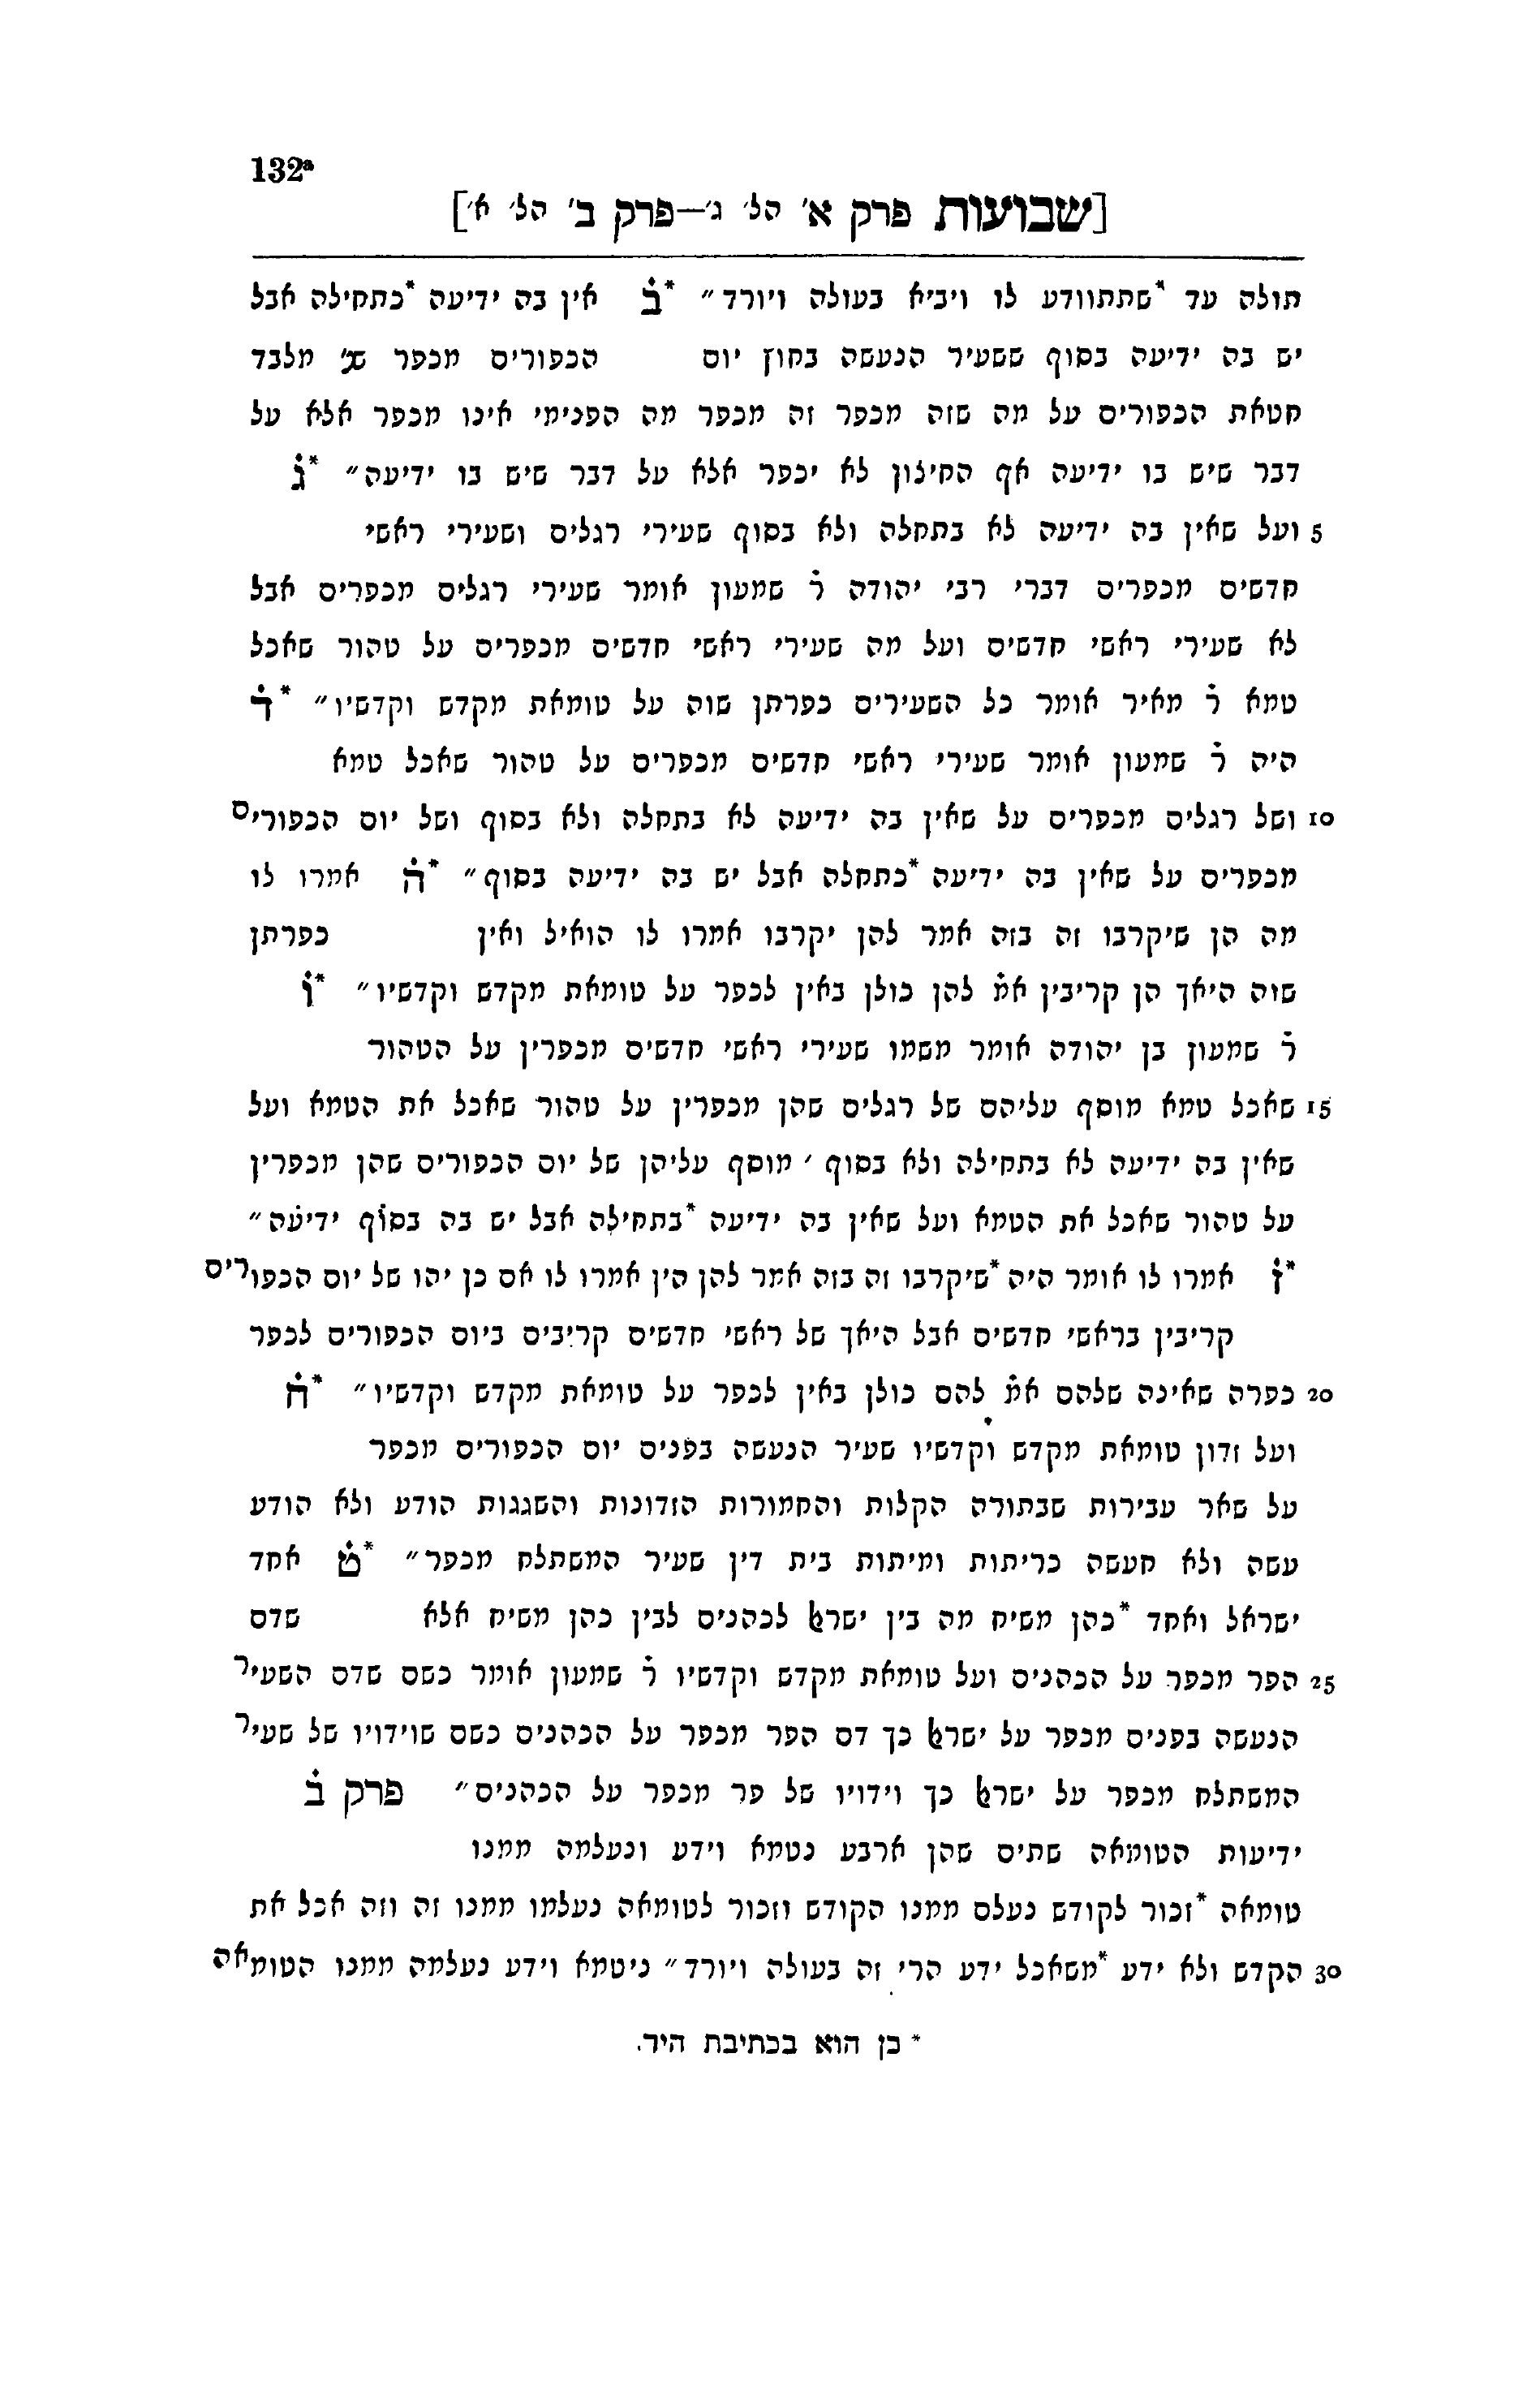 132ª
[שבועות פרק א' הל' ג'—פרק ב' הל' א']
תולה עד *שתתוודע לו ויביא בעולה ויורד״ *ב̇ אין בה ידיעה *כתחילה אבל
יש בה ידיעה בסוף ששעיר הנעשה בחוץ יום הכפורים מכפר שנ' מלבד
חטאת הכפורים על מה שזה מכפר זה מכפר מה הפנימי אינו מכפר אלא על
דבר שיש בו ידיעה אף החיצון לא יכפר אלא על דבר שיש בו ידיעה״ *ג̇
5 ועל שאין בה ידיעה לא בתחלה ולא בסוף שעירי רגלים ושעירי ראשי
חדשים מכפרים דברי רבי יהודה ר̇ שמעון אומר שעירי רגלים מכפרים אבל
לא שעירי ראשי חדשים ועל מה שעירי ראשי חדשים מכפרים על טהור שאכל
טמא ר̇ מאיר אומר כל השעירים כפרתן שוה על טומאת מקדש וקדשיו״ *ד̇
היה ר̇ שמעון אומר שעירי ראשי חדשים מכפרים על טהור שאכל טמא
10 ושל רגלים מכפרים על שאין בה ידיעה לא בתחלה ולא בסוף ושל יום הכפורים
מכפרים על שאין בה ידיעה *כתחלה אבל יש בה ידיעה בסוף״ *ה̇ אמרו לו
מה הן שיקרבו זה בזה אמר להן יקרבו אמרו לו הואיל ואין כפרתן
שוה היאך הן קריבין אמ̇ להן כולן באין לכפר על טומאת מקדש וקדשיו״ *ו̇
ר̇ שמעון בן יהודה אומר משמו שעירי ראשי חדשים מכפרין על הטהור
15 שאכל טמא מוסף עליהם של רגלים שהן מכפרין על טהור שאכל את הטמא ועל
שאין בה ידיעה לא בתחילה ולא בסוף ׳ מוסף עליהן של יום הכפורים שהן מכפרין
על טהור שאכל את הטמא ועל שאין בה ידיעה *בתחילה אבל יש בה בסו̇ף ידיע̇ה״
*ז̇ אמרו לו אומר היה *שיקרבו זה בזה אמר להן הין אמרו לו אם כן יהו של יום הכפורים
קריבין בראשי חדשים אבל היאך של ראשי חדשים קריבים ביום הכפורים לכפר
20 כפרה שאינה שלהם אמ̇ להם כולן באין לכפר על טומאת מקדש וקדשיו״ *ח̇
ועל זדון טומאת מקדש וקדשיו שעיר הנעשה בפנים יום הכפורים מכפר
על שאר עבירות שבתורה הקלות והחמורות הזדונות והשגגות הודע ולא הודע
עשה ולא תעשה כריתות ומיתות בית דין שעיר המשתלח מכפר״ *ט̇ אחד
ישראל ואחד *כהן משיח מה בין ישראל לכהנים לבין כהן משיח אלא שדם
25 הפר מכפר על הכהנים ועל טומאת מקדש וקדשיו ר̇ שמעון אומר כשם שדם השעיר
הנעשה בפנים מכפר על ישראל כך דם הפר מכפר על הכהנים כשם שוידויו של שעיר
המשתלח מכפר על ישראל כך וידויו של פר מכפר על הכהנים״ פרק ב̇
ידיעות הטומאה שתים שהן ארבע נטמא וידע ונעלמה ממנו
טומאה *זכור לקודש נעלם ממנו הקודש וזכור לטומאה נעלמו ממנו זה וזה אכל את
30 הקדש ולא ידע *משאכל ידע הרי זה בעולה ויורד״ ניטמא וידע נעלמה ממנו הטומאה
* כן הוא בכתיבת היד.